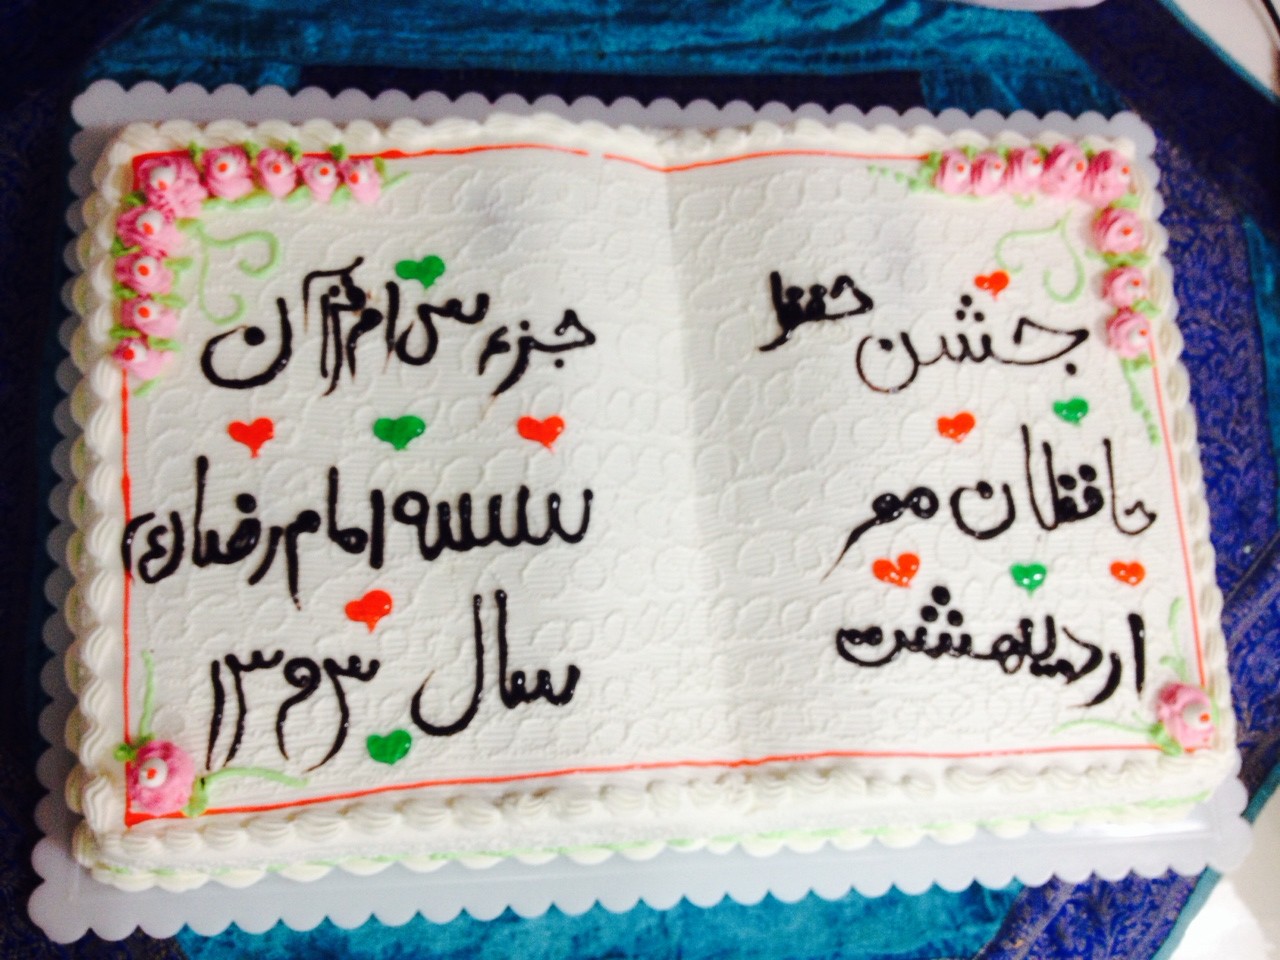 جشن حفظ
حافظان مهر
اردیبهشت
جزء سی ام قرآن
امام رضا (ع)
سال ۱۳۹۳